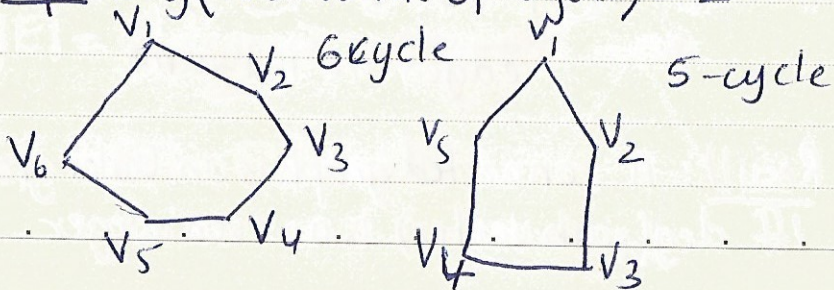 V1
6cycle
V2
V6
V3
V5
V4
V1
5-cycle
V5
V2
V4
V3